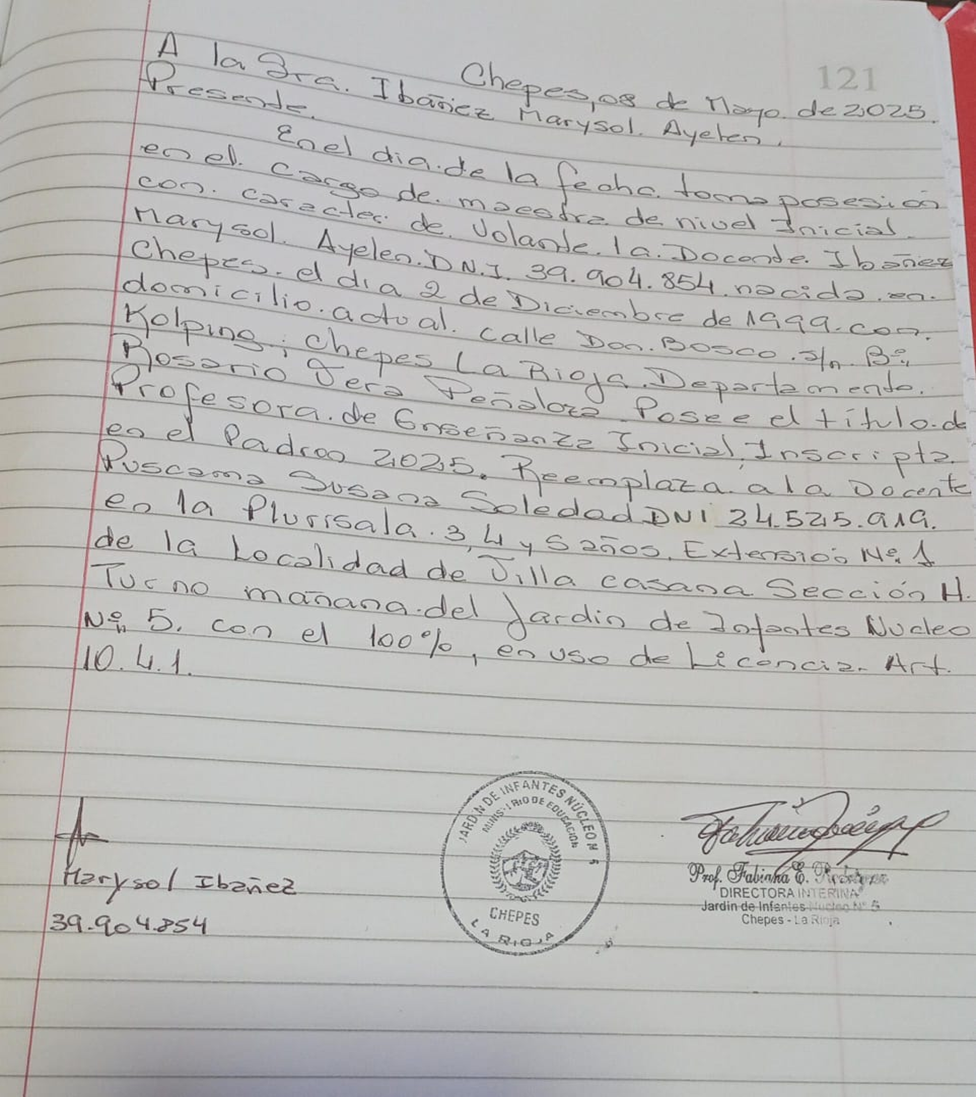 121
Chepes, 08 de Mayo. de 2025.
A la Sra. Ibañez Marysol. Ayelen.
Presente.
En el dia. de la fecha. toma posesión
en el. cargo de. maestra de nivel Inicial.
con. caracter. de. Volante. la. Docente. Ibañez
Marysol. Ayelen. D.N.I. 39.904.854. nacida. en.
Chepes. el dia 2 de Diciembre de 1999. con.
domicilio. actual. calle Don. Bosco. s/n Bº.
Kolping; Chepes La Rioja. Departamento.
Rosario Vera Peñaloza Posee el título. de
Profesora. de Enseñanza Inicial, Inscripta.
en el Padron 2025. Reemplaza. a la Docente
Puscama Susana Soledad DNI 24.525.919.
en la Plurisala. 3, 4 y 5 años. Extensión Nº. 1
de la Localidad de Villa casana Sección H.
Turno mañana. del Jardin de Infantes Nucleo
Nº 5. con el 100%, en uso de Licencia. Art.
10.4.1.
JARDIN DE INFANTES NÚCLEO N 5
MINISTERIO DE EDUCACION
CHEPES
LA RIOJA
Marysol Ibañez
39.904.854
Prof. Fabiana E.
DIRECTORA INTERINA
Jardin de Infantes Nucleo Nº 5
Chepes - La Rioja